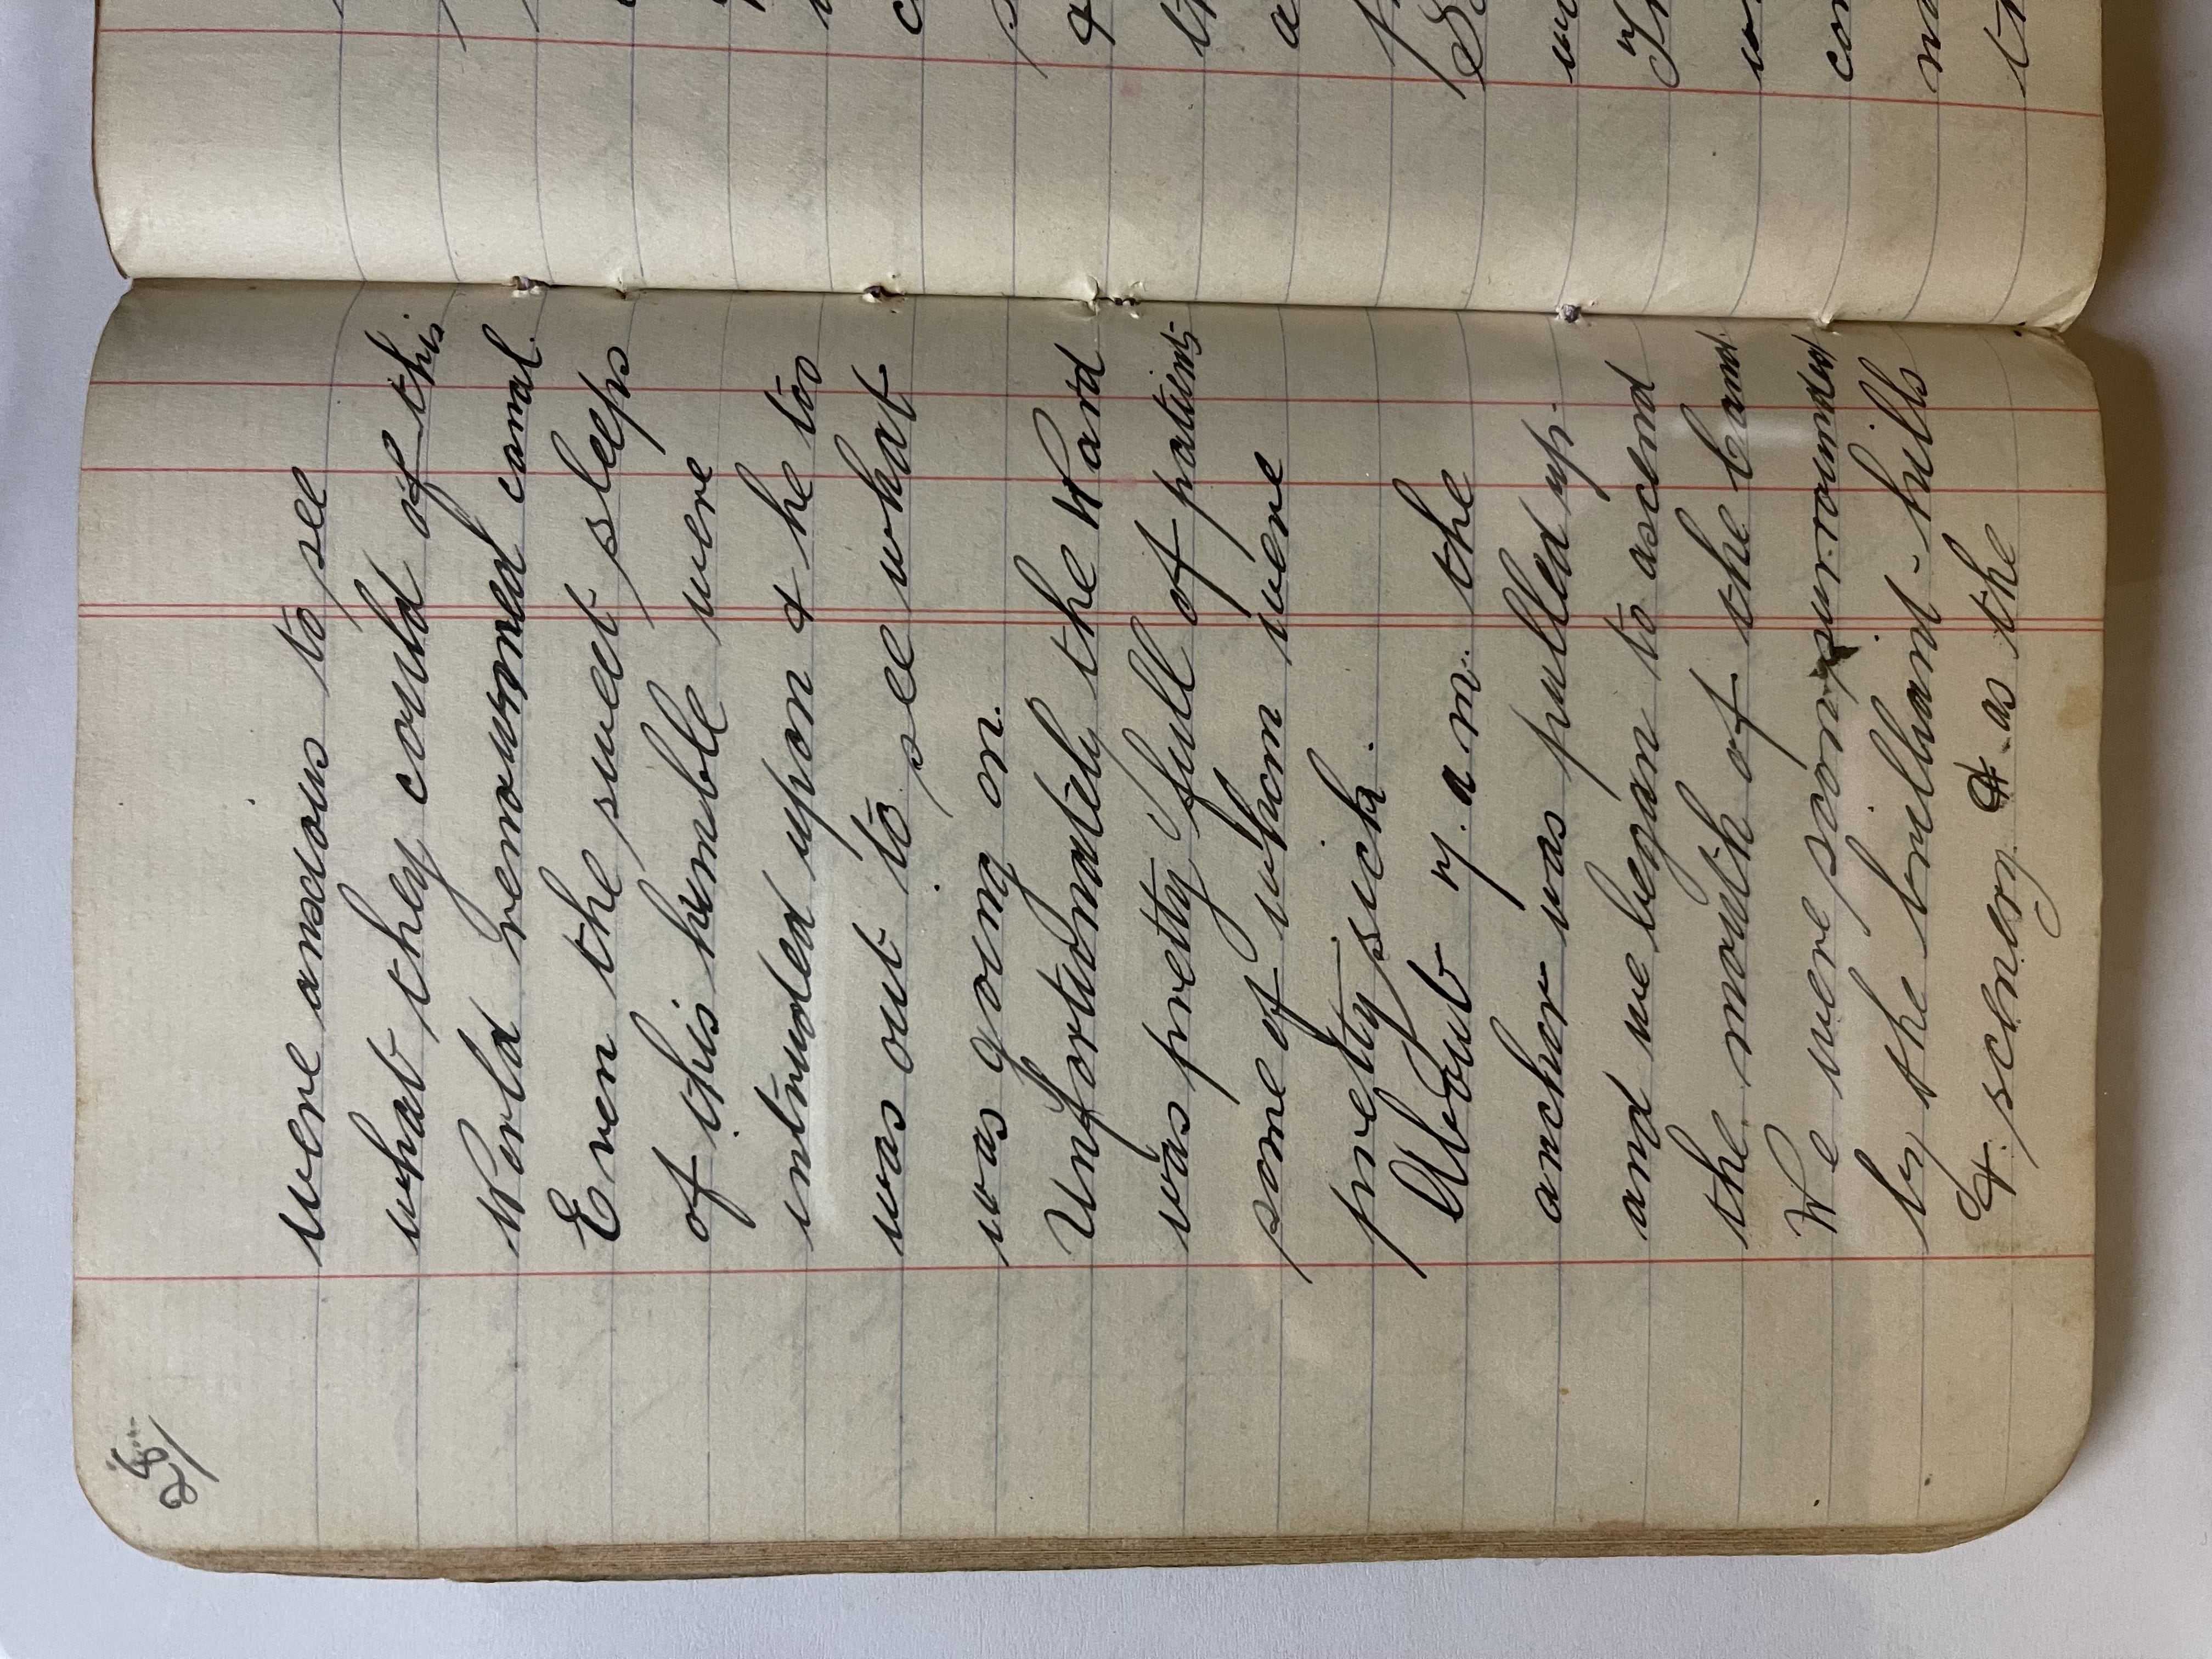 28/
were anxious to see
what they could of this
World renowned canal.
Even the sweet sleeps
of this humble were
intruded upon & he too
was out to see what
was going on.
Unfortunately the Ward
was pretty full of patients
some of whom were
pretty sick.
About 7. a m. the
anchor was pulled up.
and we began to ascend
the mouth of the Canal
We were soon surrounded
by the brilliant hills
& scenery & as the